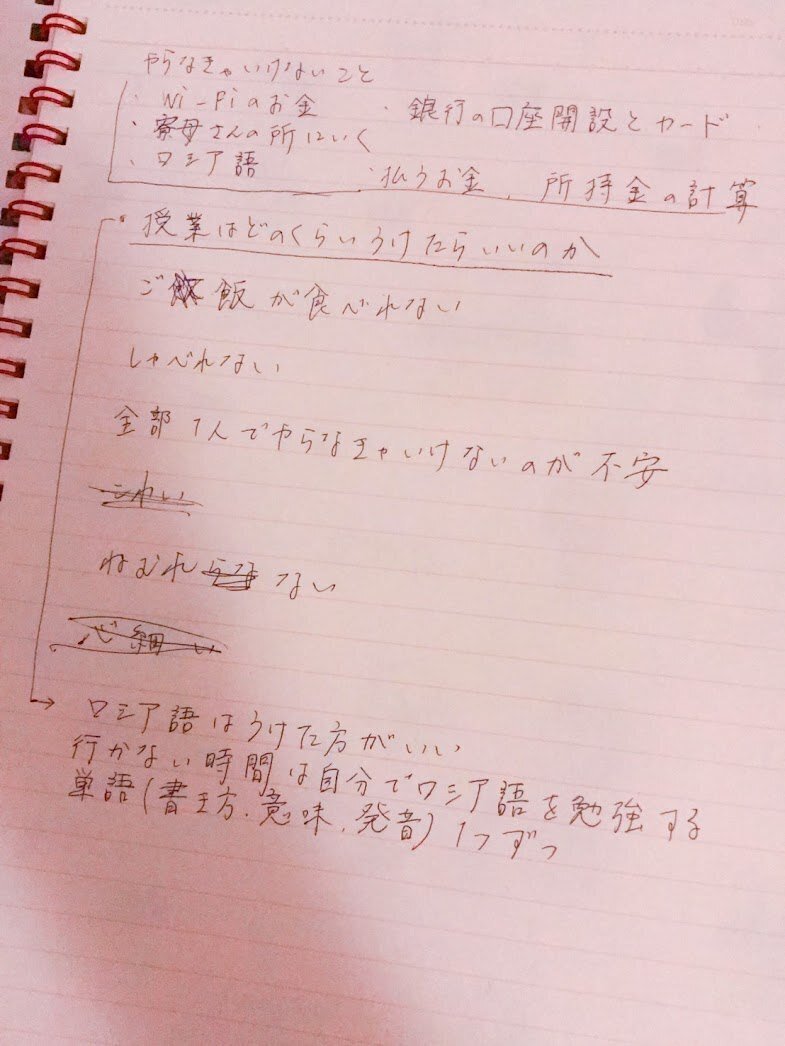 やらなきゃいけないこと
・Wi-Fiのお金 ・銀行の口座開設とカード
・寮母さんの所にいく
・ロシア語 ・払うお金、所持金の計算
・授業はどのくらいうけたらいいのか
ご飯が食べれない
しゃべれない
全部1人でやらなきゃいけないのが不安
こわい
ねむれない
心細い
ロシア語はうけた方がいい
行かない時間は自分でロシア語を勉強する
単語(書き方、意味、発音)1つずつ